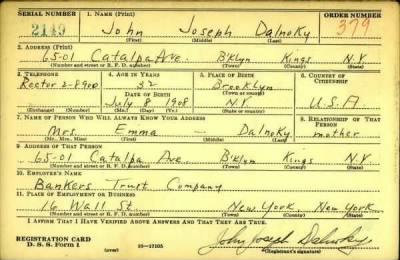 SERIAL NUMBER 1. NAME (Print) ORDER NUMBER
2149 John Joseph Dalnoky 379
(First) (Middle) (Last)
2. ADDRESS (Print)
65-01 Catalpa Ave. B'klyn Kings N.Y.
(Number and street or R. F. D. number) (Town) (County) (State)
3. TELEPHONE 4. AGE IN YEARS 5. PLACE OF BIRTH 6. COUNTRY OF CITIZENSHIP
Rector 2-8900 32 Brooklyn
DATE OF BIRTH (Town or county)
July 8 1908 N.Y. U.S.A.
(Exchange) (Number) (Mo.) (Day) (Yr.) (State or country)
7. NAME OF PERSON WHO WILL ALWAYS KNOW YOUR ADDRESS 8. RELATIONSHIP OF THAT PERSON
Mrs. Emma — Dalnoky mother
(Mr., Mrs., Miss) (First) (Middle) (Last)
9. ADDRESS OF THAT PERSON
65-01 Catalpa Ave B'klyn Kings N.Y.
(Number and street or R. F. D. number) (Town) (County) (State)
10. EMPLOYER'S NAME
Bankers Trust Company
11. PLACE OF EMPLOYMENT OR BUSINESS
16 Wall St. New York New York
(Number and street or R. F. D. number) (Town) (County) (State)
I AFFIRM THAT I HAVE VERIFIED ABOVE ANSWERS AND THAT THEY ARE TRUE.
REGISTRATION CARD
D. S. S. Form 1 (over) 16-17105 John Joseph Dalnoky
(Registrant's signature)